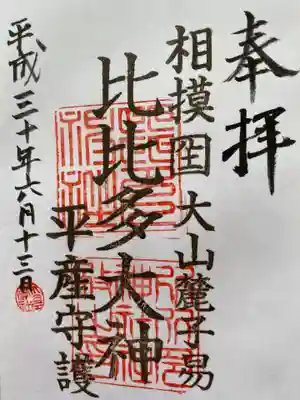 奉拝
相模国大山麓子易
比比多大神
平産守護
平成三十年六月十三日